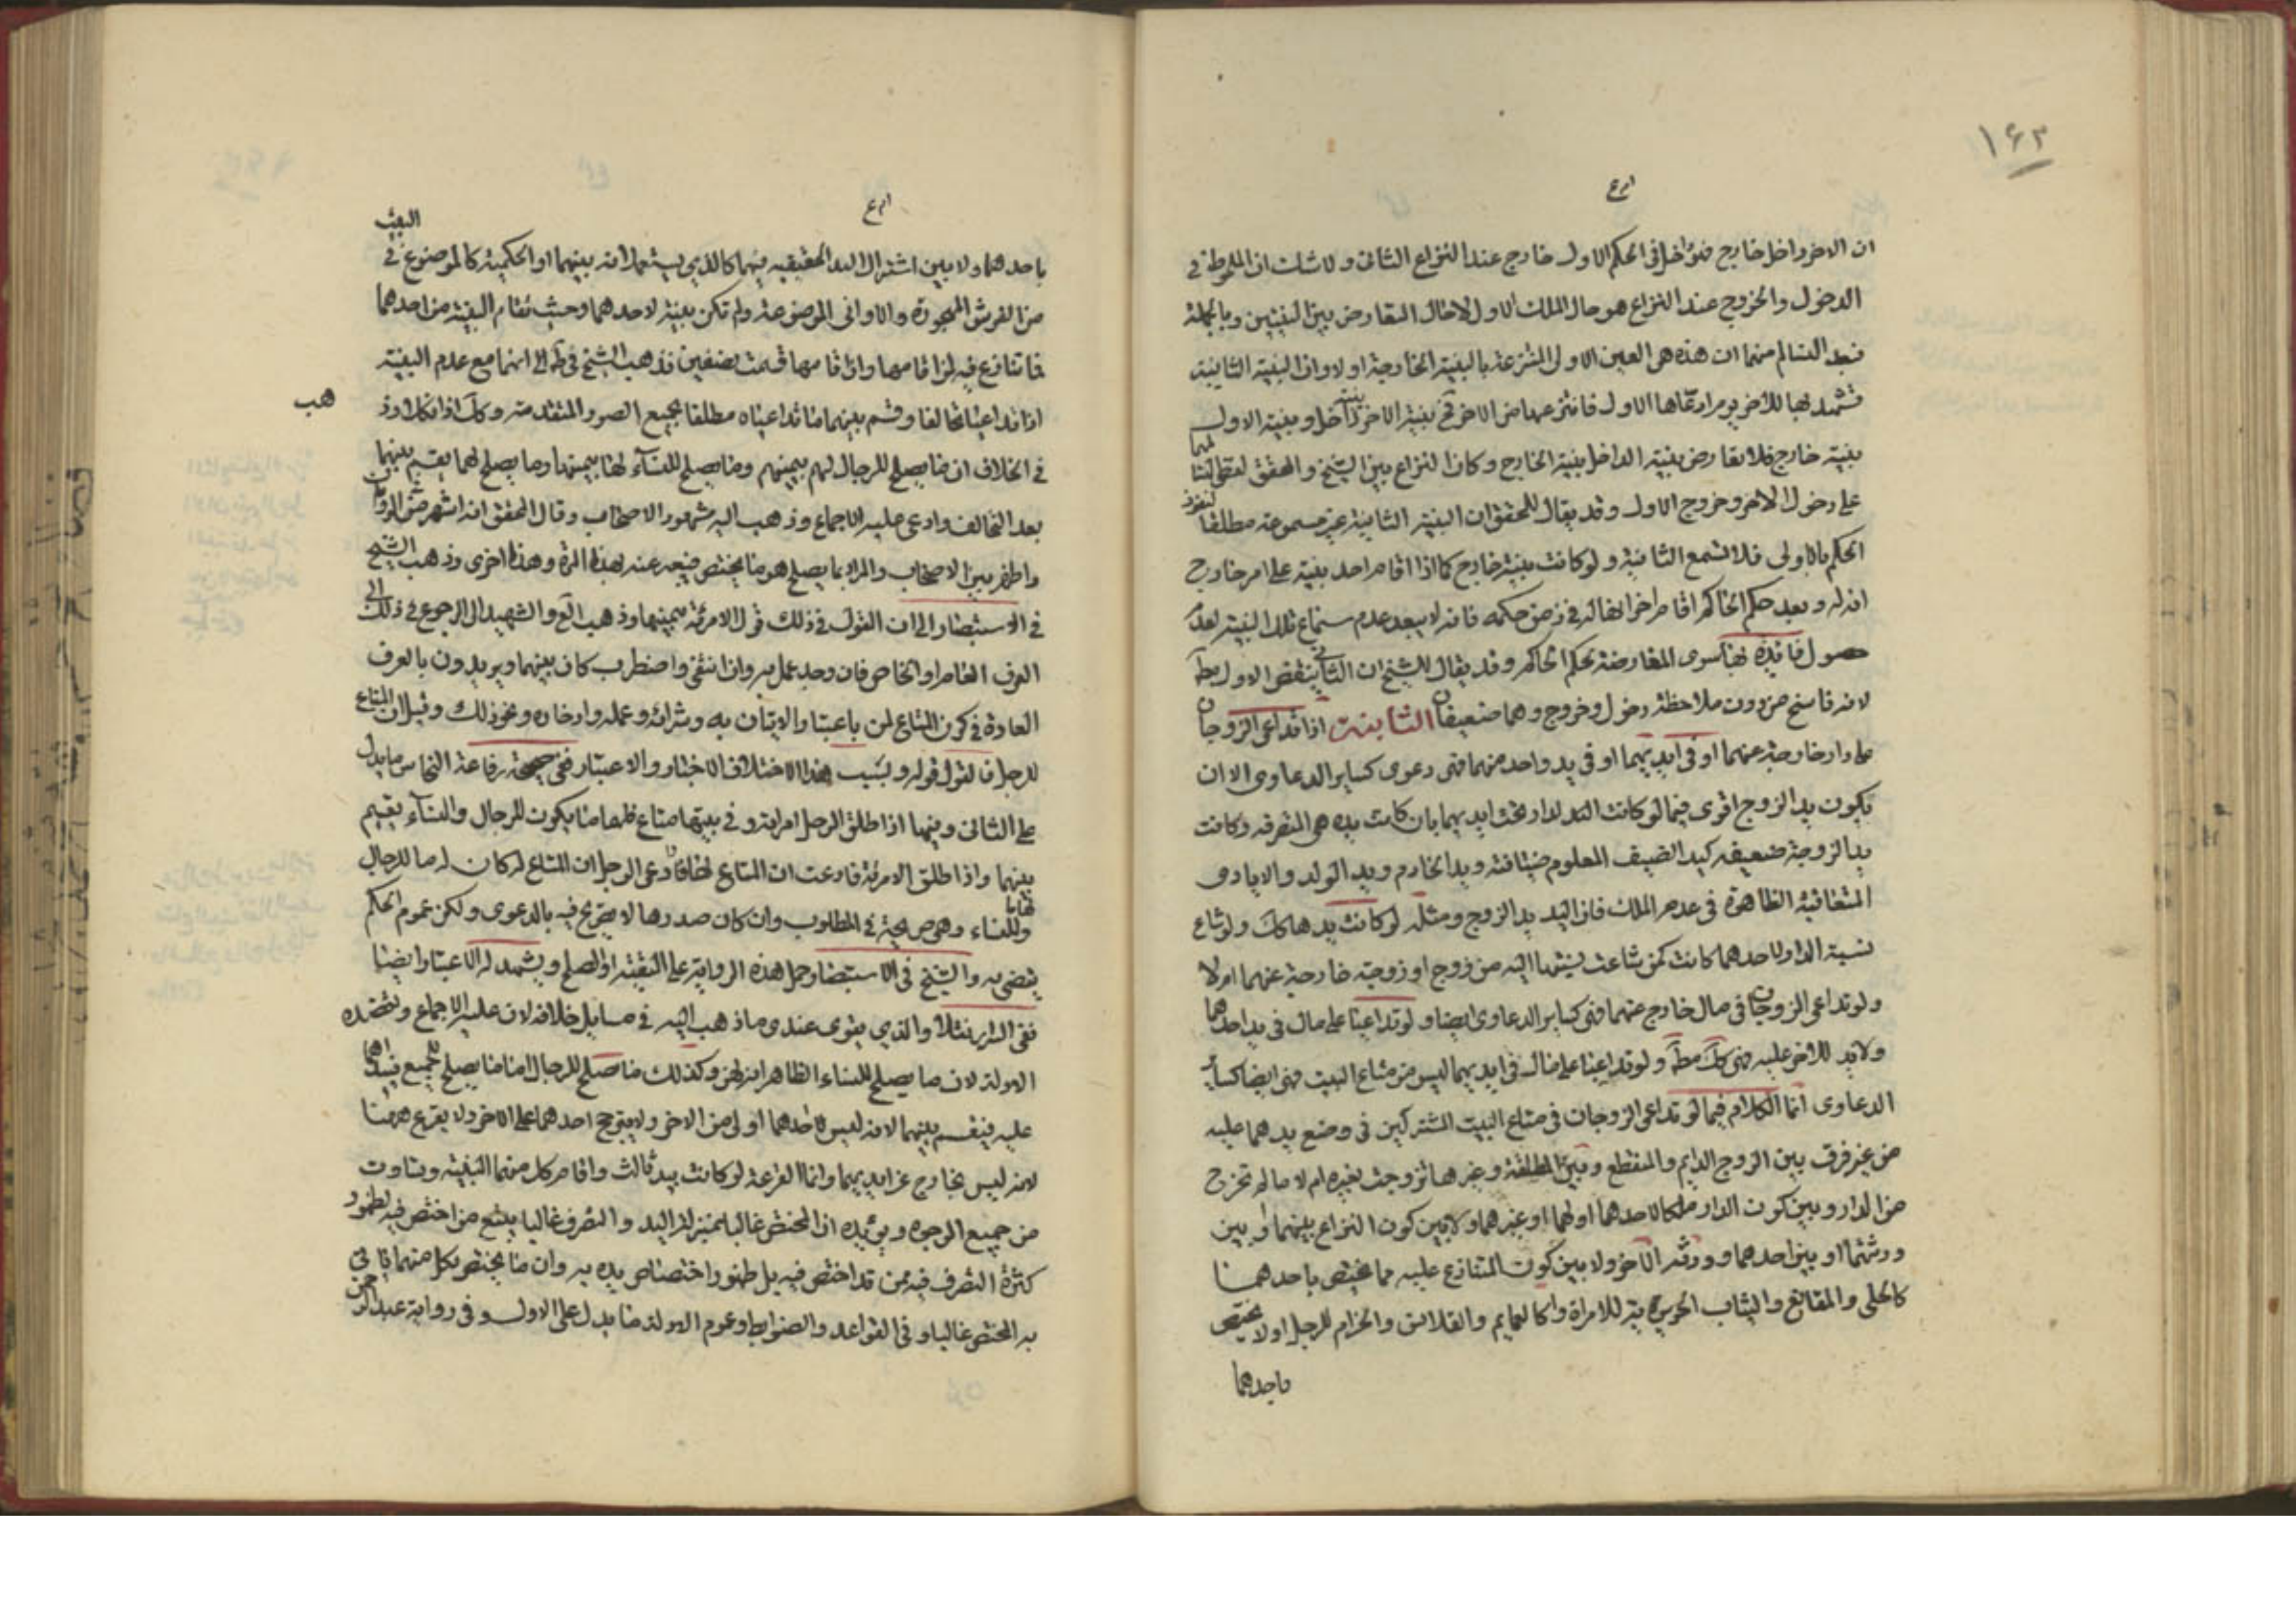 ١٤٣
ان الاخر داخل خارج هو داخل في الحكم الاول خارج عند النزاع الثانى ولا شك ان الملحوظ في
الدخول والخروج عند النزاع هو حال الملك الاول لاحال التعارض بين البينتين وبالجملة
فبعد التسالم منهما ان هذه هى العين الاولى المنتزعة بالبينة الخارجة اولا وان البينة الثانية
تشهد بها للاخر يوم ادعاها الاول فانتزعها من الاخر تكون بينة الاخر بينة داخل وبينة الاول
بينة خارج فلا تعارض بينة الداخل بينة الخارج وكان النزاع بين الشيخ والمحقق لفظى
على دخول الاخر وخروج الاول وقد يقال للمحقق ان البينة الثانية غير مسموعة مطلقا لنفوذ
الحكم بالاولى فلا تسمع الثانية ولو كانت بينة خارج كما اذا اقام احد بينة على امر خارج
انه له وبعد حكم الحاكم اقام اخر انها له في زمن حكمه فانه لا يبعد عدم سماع تلك البينة لعدم
حصول فائدة بها سوى المعارضة بحكم الحاكم وقد يقال للشيخ ان الثانى ينقض الاول مط
لانه فاسخ من دون ملاحظة دخول وخروج وهما ضعيفان الثانية اذا تداعى الزوجان
على دار خارجة عنهما او في ايديهما او في يد واحد منهما فهى دعوى كسائر الدعاوى الا ان
يكون يد الزوج اقوى فيما لو كانت اليد للدار تحت ايديهما بان كانت يده هى المتصرفه وكانت
يد الزوجة ضعيفه كيد الضيف المعلوم ضيافته ويد الخادم ويد الولد والايادى
المتعاقبة الظاهرة في عدم الملك فان اليد يد الزوج ومثله لو كانت يدها كك ولو شاع
نسبة الدار لاحدهما كانت كمن شاعت نسبتها اليه من زوج او زوجة خارجة عنهما اولا
ولو تداعى الزوجان في مال خارج عنهما فهى كسائر الدعاوى ايضا ولو تداعيا على مال في يد احدهما
ولا يد للاخر عليه فهى كك مط ولو تداعيا على مال في ايديهما ليس من متاع البيت فهى ايضا كسائر
الدعاوى انما الكلام فيما لو تداعى الزوجان في متاع البيت المشتركين في وضع يدهما عليه
من غير فرق بين الزوج الدايم والمنقطع وبين المطلقة وغيرها تزوجت بغيره ام لا ما لم تخرج
من الدار وبين كون الدار ملكا لاحدهما او لهما او غيرهما ولا بين كون النزاع بينهما او بين
ورثتهما او بين احدهما وورثة الاخر ولا بين كون المتنازع عليه مما يختص باحدهما
كالحلى والمقانع والثياب الحريرية للامراة وكالعمايم والقلانس والحزام للرجل اولا يختص
باحدهما
باحدهما ولا بين اشتراك اليد الحقيقيه فيهما كالذي يستعملانه بينهما او الحكمية كالموضوع في البيت
من الفرش المهجورة والاوانى الموضوعة ولم تكن بينة لاحدهما وحيث تقام البينة من احدهما
فاتنازع فيه لمن اقامها وان اقامها قسمت نصفين فذهب الشيخ في ط الى انهما مع عدم البينة
اذا تداعيا تحالفا وقسم بينهما ما تداعياه مطلقا بجميع الصور المتقدمة وذهب
في الخلاف ان ما يصلح للرجال لهم بيمينهم وما يصلح للنساء لهنا بيمينها وما يصلح لهما يقسم بينهما
بعد التحالف وادعى عليه الاجماع وذهب اليه مشهور الاصحاب وقال المحقق انه اشهر من الروايات
واظهر بين الاصحاب والمراد بما يصلح هو ما يختص وذهب الشيخ
في الاستبصار الى ان القول في ذلك قول الامرئة بيمينها وذهب العلامة والشهيد الى الرجوع في ذلك الى
العرف العام او الخاص فان وجد عمل به وان انتفى واضطرب كان بينهما ويريدون بالعرف
العادة في كون المتاع لمن باعتبار الاتيان به وشرائه وعمله وادخاره ونحو ذلك وقيل ان المتاع
للرجل فالقول قوله وبسبب هذا الاختلاف الاختبار والاعتبار ففي صحيحة رفاعة النخاس ما يدل
على الثانى وفيها اذا طلق الرجل امراته وفي بيتها متاع فلها ما يكون للرجال والنساء يقسم
بينهما واذا طلق الامرئة فادعت ان المتاع لها وادعى الرجل ان المتاع له كان له ما للرجال
ولها ما للنساء وهى صريحة في المطلوب وان كان صدرها لا تصريح فيه بالدعوى ولكن عموم الحكم
يقضى به والشيخ في الاستبصار حمل هذه الرواية على التقية او الصلح ويشهد له الاعتبار ايضا
ففى السراير نقلا والذي يقوى عندى ما ذهب اليه في مسايل خلافه لان عليه الاجماع وتعضده
الادلة لان ما يصلح للنساء الظاهر انه لهن وكذلك ما صلح للرجال اما ما يصلح للجميع فيداهما
عليه فيقسم بينهما لانه ليس احدهما اولى من الاخر ولا يترجح احدهما على الاخر ولا يقرع ههنا
لانه ليس بخارج عن ايديهما وانما القرعة لو كانت بيد ثالث واقام كل منهما البينة وتساوت
من جميع الوجوه ويؤيده ان المختص غالبا
كثرة التصرف فيه ممن قد اختص فيه بل ظهور اختصاص يده به وان ما يختص بكل منهما
به المختص غالبا وفي القواعد والضوابط وعموم الادلة ما يدل على الاول وفي رواية عبد الرحمن